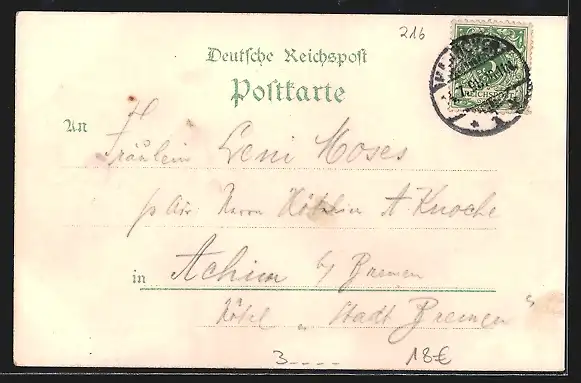 216
Deutsche Reichspost
Postkarte
An Fräulein Leni Moses
p Adr. Herrn A Knoche
in Achim b/ Bremen
Hôtel „Stadt Bremen“
3----
18€